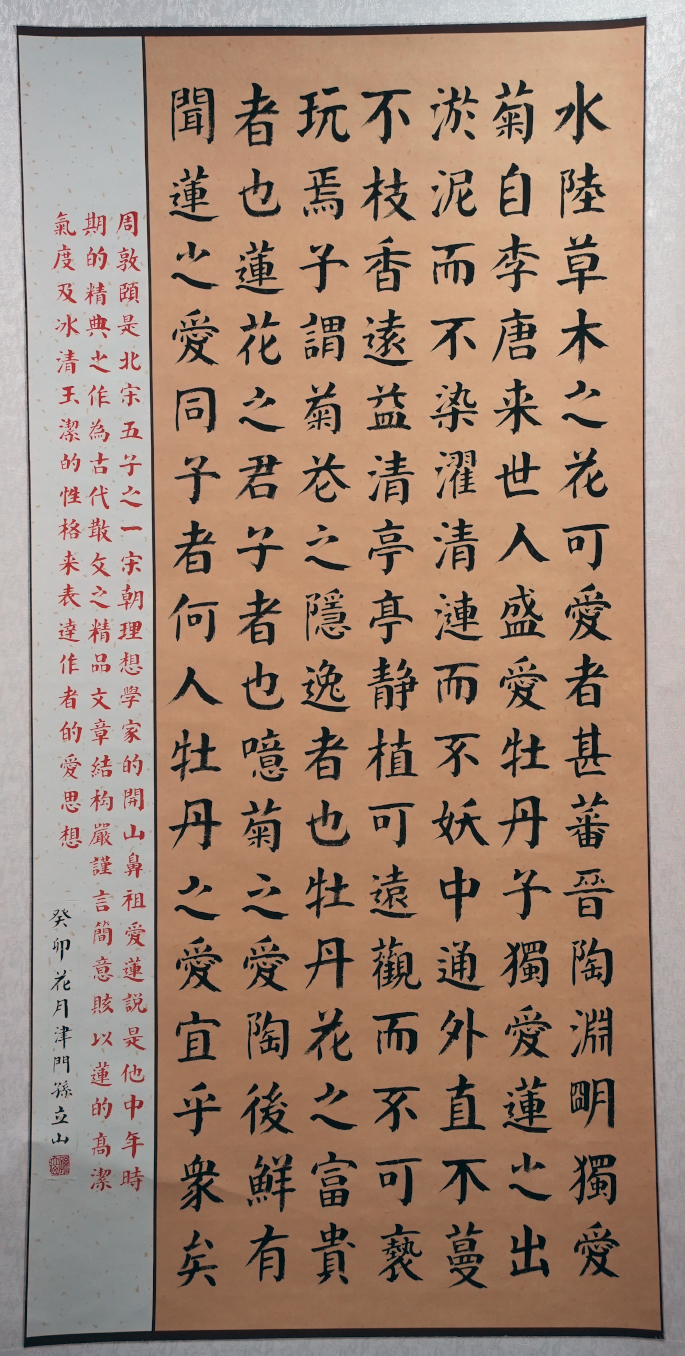 水陸草木之花可愛者甚蕃晉陶淵明獨愛
菊自李唐来世人盛愛牡丹子獨愛蓮之出
淤泥而不染濯清漣而不妖中通外直不蔓
不枝香遠益清亭亭静植可遠觀而不可褻
玩焉子謂菊花之隱逸者也牡丹花之富貴
者也蓮花之君子者也噫菊之愛陶後鮮有
聞蓮之愛同子者何人牡丹之愛宜乎衆矣
周敦頤是北宋五子之一宋朝理想學家的開山鼻祖愛蓮説是他中年時
期的精典之作為古代散文之精品文章結构嚴謹言簡意賅以蓮的高潔
氣度及冰清玉潔的性格来表達作者的愛思想
癸卯花月津門孫立山